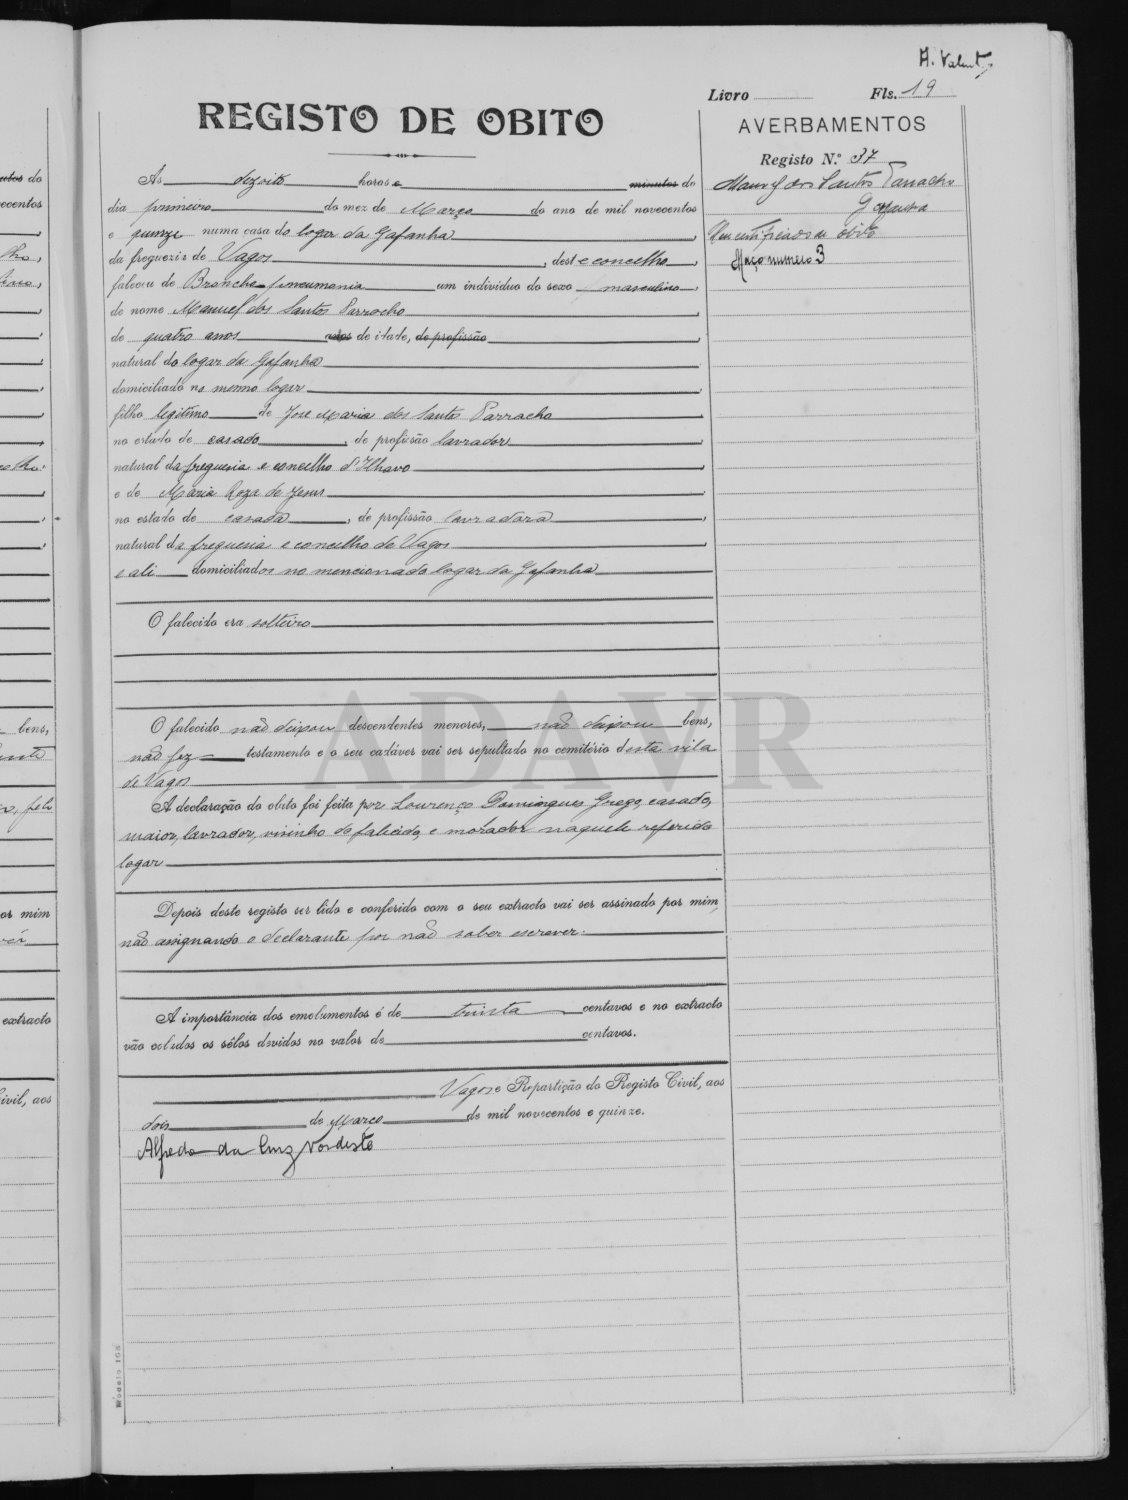 A. Valent
Livro Fls. 19
REGISTO DE OBITO
AVERBAMENTOS
Registo N.º 37
Manuel dos Santos Parracho
Gafanha
Um certificado de obito
Maço numero 3
As dezoito horas e minutos do
dia primeiro do mez de Março do ano de mil novecentos
e quinze numa casa do logar da Gafanha,
da freguezia de Vagos, deste concelho,
faleceu de Broncho-pneumonia um individuo do sexo masculino
de nome Manuel dos Santos Parracho
de quatro anos anos de idade, de profissão
natural do logar da Gafanha
domiciliado no mesmo logar
filho legitimo de José Maria dos Santos Parracho
no estado de casado, de profissão lavrador
natural da freguesia e concelho d'Ilhavo
e de Maria Roza de Jesus
no estado de casada, de profissão lavradora,
natural da freguesia e concelho de Vagos
e ali domiciliados no mencionado logar da Gafanha
O falecido era solteiro
O falecido não deixou descendentes menores, não deixou bens,
não fez testamento e o seu cadáver vai ser sepultado no cemitério desta vila
de Vagos
A declaração do obito foi feita por Lourenço Domingues Grego, casado,
maior, lavrador, visinho do falecido, e morador naquele referido
logar
Depois deste registo ser lido e conferido com o seu extracto vai ser assinado por mim,
não assignando o declarante por não saber escrever.
A importância dos emolumentos é de trinta centavos e no extracto
vão colados os sêlos devidos no valor de centavos.
Vagos e Repartição do Registo Civil, aos
dois de Março de mil novecentos e quinze.
Alfredo da Cruz
Modelo 103
ADAVR
utos do
ecentos
bens,
or mim
extracto
ivil, aos